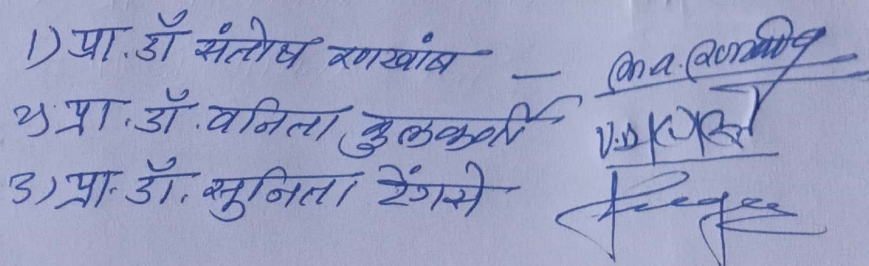 1) प्रा. डॉ संतोष रणखांब –
२) प्रा. डॉ. वनिता कुलकर्णी
3) प्रा. डॉ. सुनिता टेंगसे